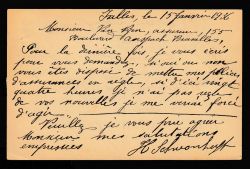 Ixelles, le 15 Janvier 1926
Monsieur Van, assureur, 155
Boulevard Bruxelles
Pour la dernière fois, je vous écris
pour vous demander, si oui ou non
vous êtes disposé de mettre mes polices
d'assurances en règle, si d'ici vingt
quatre heures je n'ai pas reçu
de vos nouvelles je me verrai forcé
d'agir.
Veuillez, je vous prie agréer
Monsieur mes salutations
empressées
H